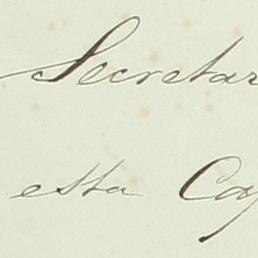 Secretar
esta Cap